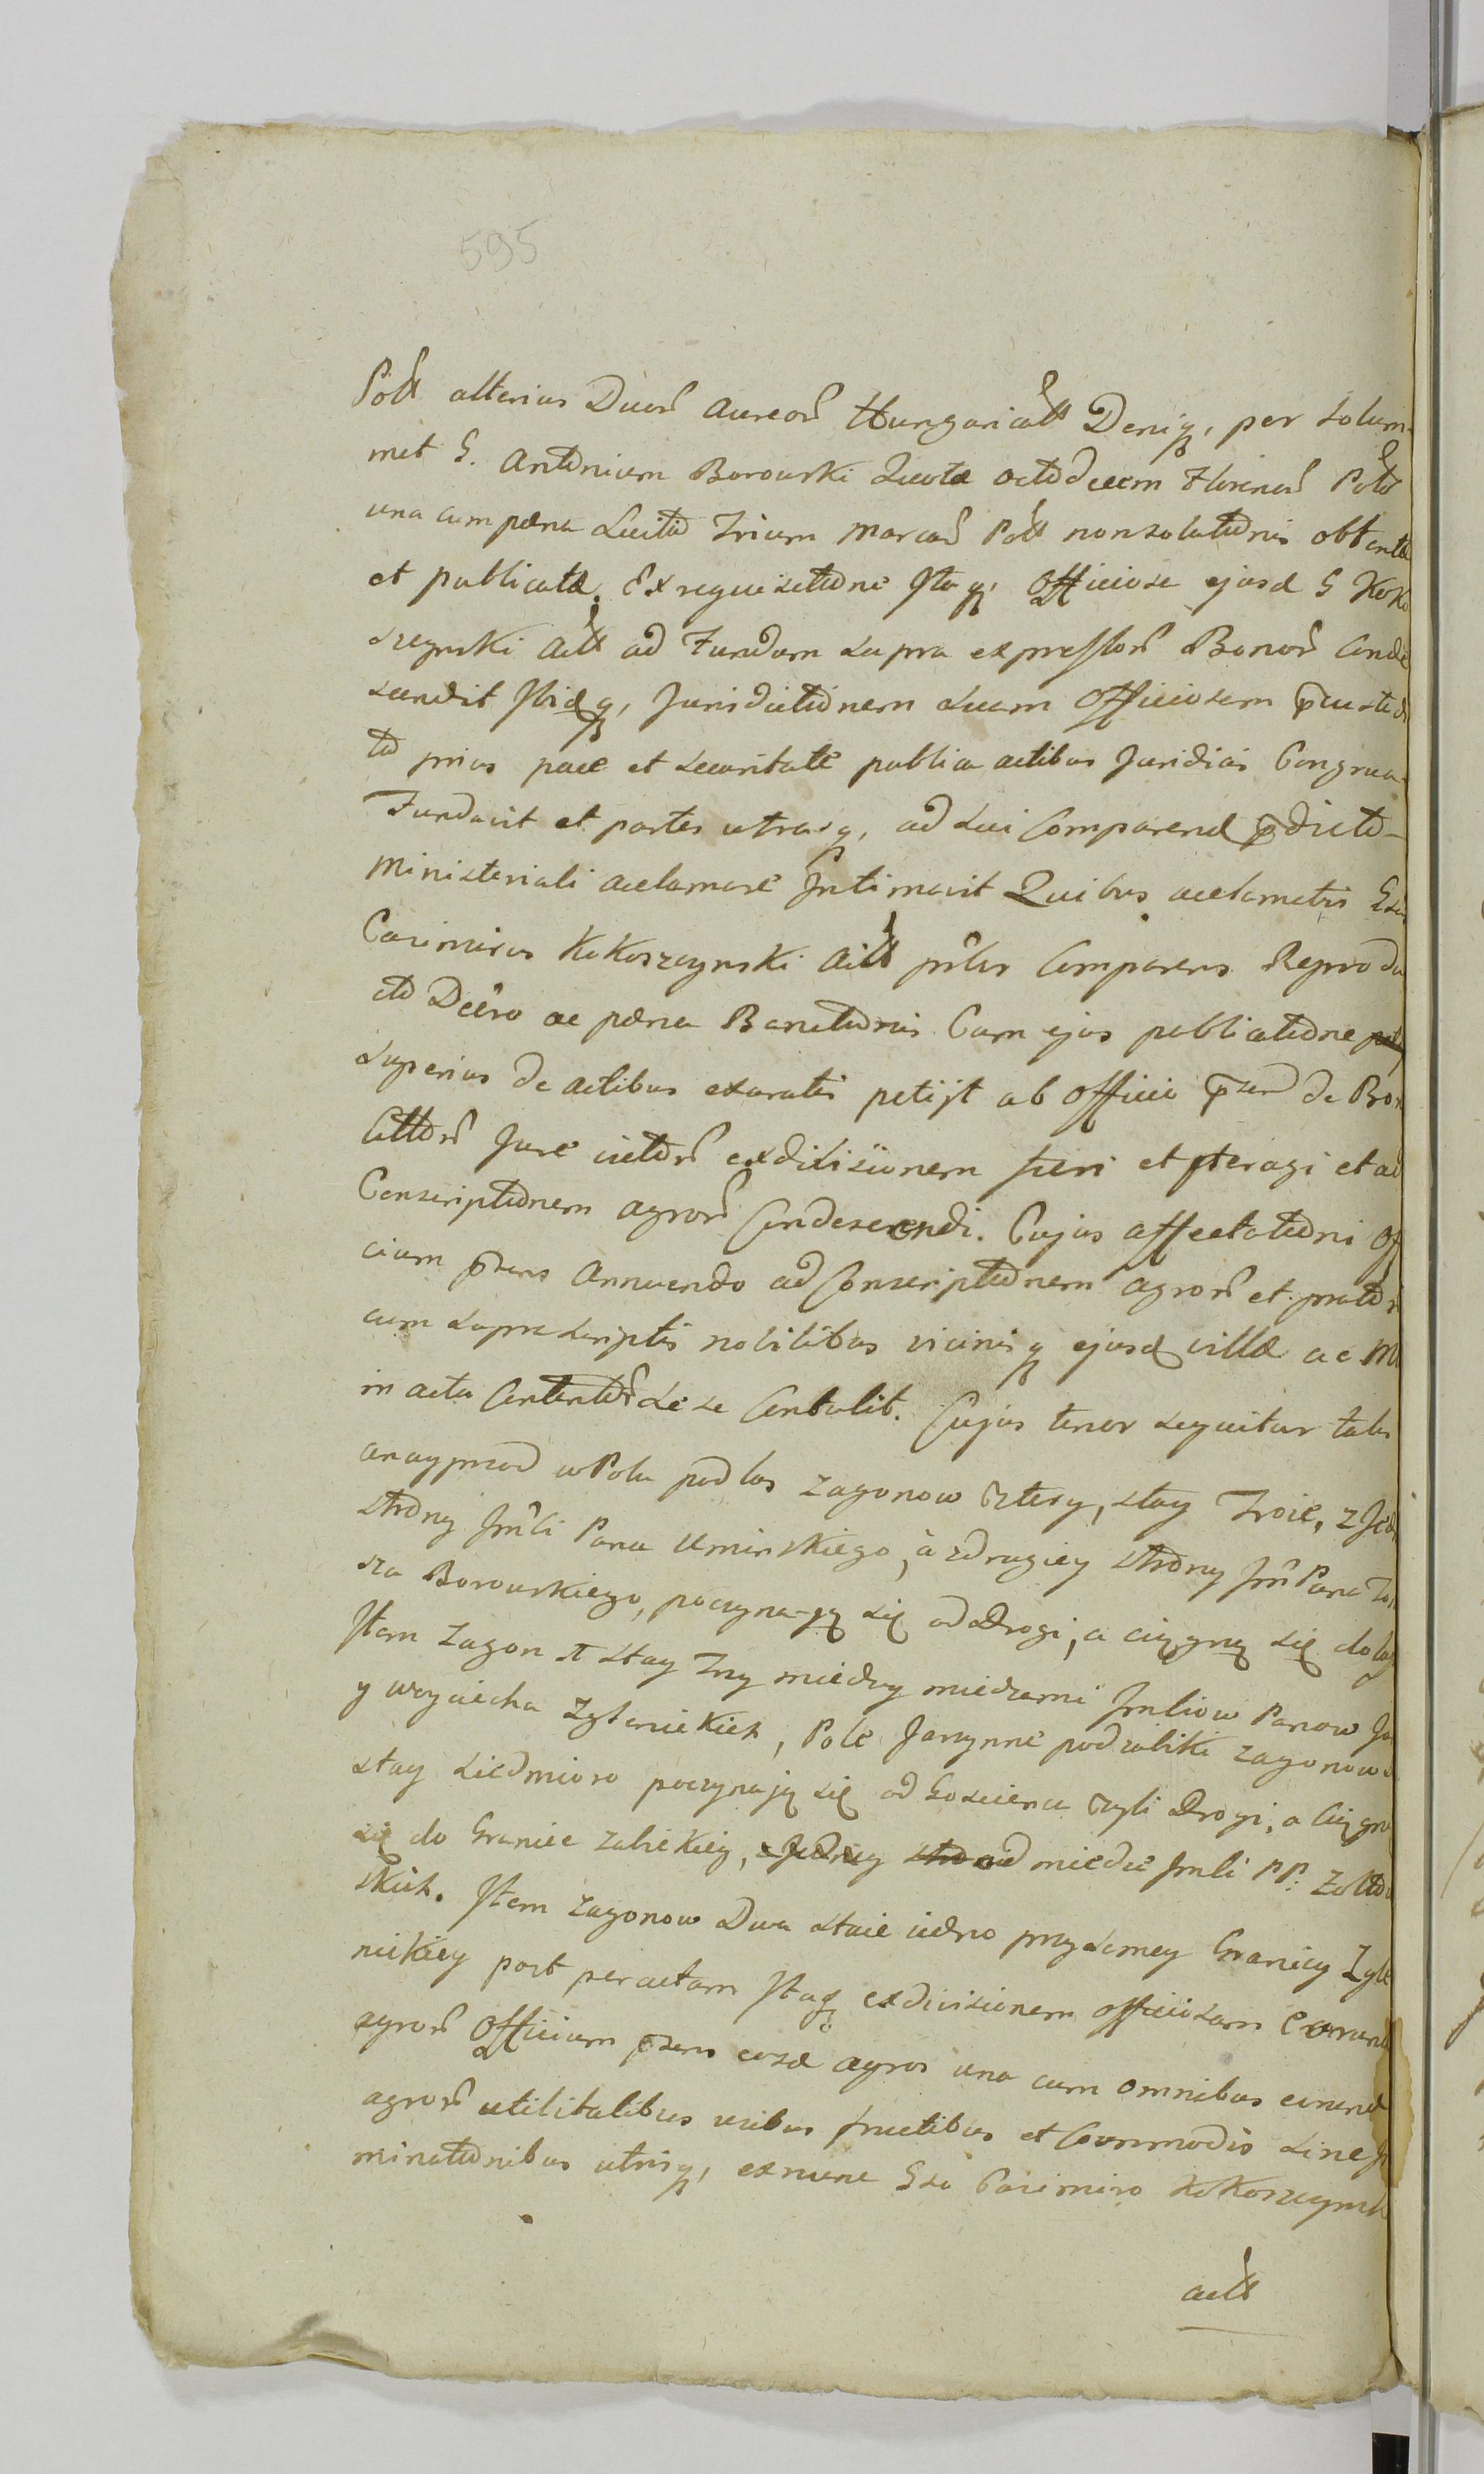 595
Polł alterius Duor̃ aureor̃ Hungaricalł Deniq, per Solum-
met G. Antonium Borowski Quotæ octodecem Florenor̃ Polo
una cum pæna Luito Trium Marcar̃ Polł nonsolutionis obtentæ
et publicatæ. Ex requisitione Itaq, Officiose ejusd G Koko
szczynski Actł ad Fundum supra expressor̃ Bonor̃ Conde
scendit Ibidq, Jurisdictionem suam Officiosam p̃custodi
to prius pace et securitate publica actibus Juridicis Congrua
Fundavit et partes utrasq, ad sui Comparend p̃dicto
Ministeriali acclamare Intimavit Quibus acclamatis Gsus
Casimirus Kokoszczynski Actł pñlr Comparens Reprodu
cto Decro ac pæna Banitionis Cum ejus publicatione
superius de actibus exaratis petijt ab Officio p̃sen de Bon
Cittor̃ Jure victor̃ exdivisionem fieri et pteragi et ad
Conscriptionem agror̃ Condescendi. Cujus affectationi Off
cium p̃sens Annuendo ad Conscriptionem agror̃ et prator̃
cum suprascriptis nobilibus vicinisq ejusd villæ ac M
in acta Contentor̃ sese Contulit. Cujus tenor sequitur talis
anayprzod w Polu pod las zagonow cztery, stay Troie, z Jed
strony Jmći Pana Uminskiego, à zdrugiey strony Jm Pana To
sza Borowskiego, poczyna-ją się od Drogi, a ciągną się do la
Item Zagon 1 stay Trzy miedzy miedzami Jmćiow Panow Ja
y woyciecha Zglenickich, Pole Jarzynne podzabiki zagonow
stay siedmioro poczynają się od Goscinca czyli Drogi, a Ciągną
się do Granice zabickiey, zJedney stro od miedze Jmći PP. Zolto
skich. Item zagonow Dwa staie iedno przysamey Granicy Zgle
nickiey post peractam Itaq exdivisionem officiosam eorund
agror̃ Officium p̃sens eosd agros una cum omnibus eorund
agror̃ utilitatibus usibus fructibus et Commodis sine I
minationibus utrisq, exnunc Gso Casimiro Kokoszczynsk
actł